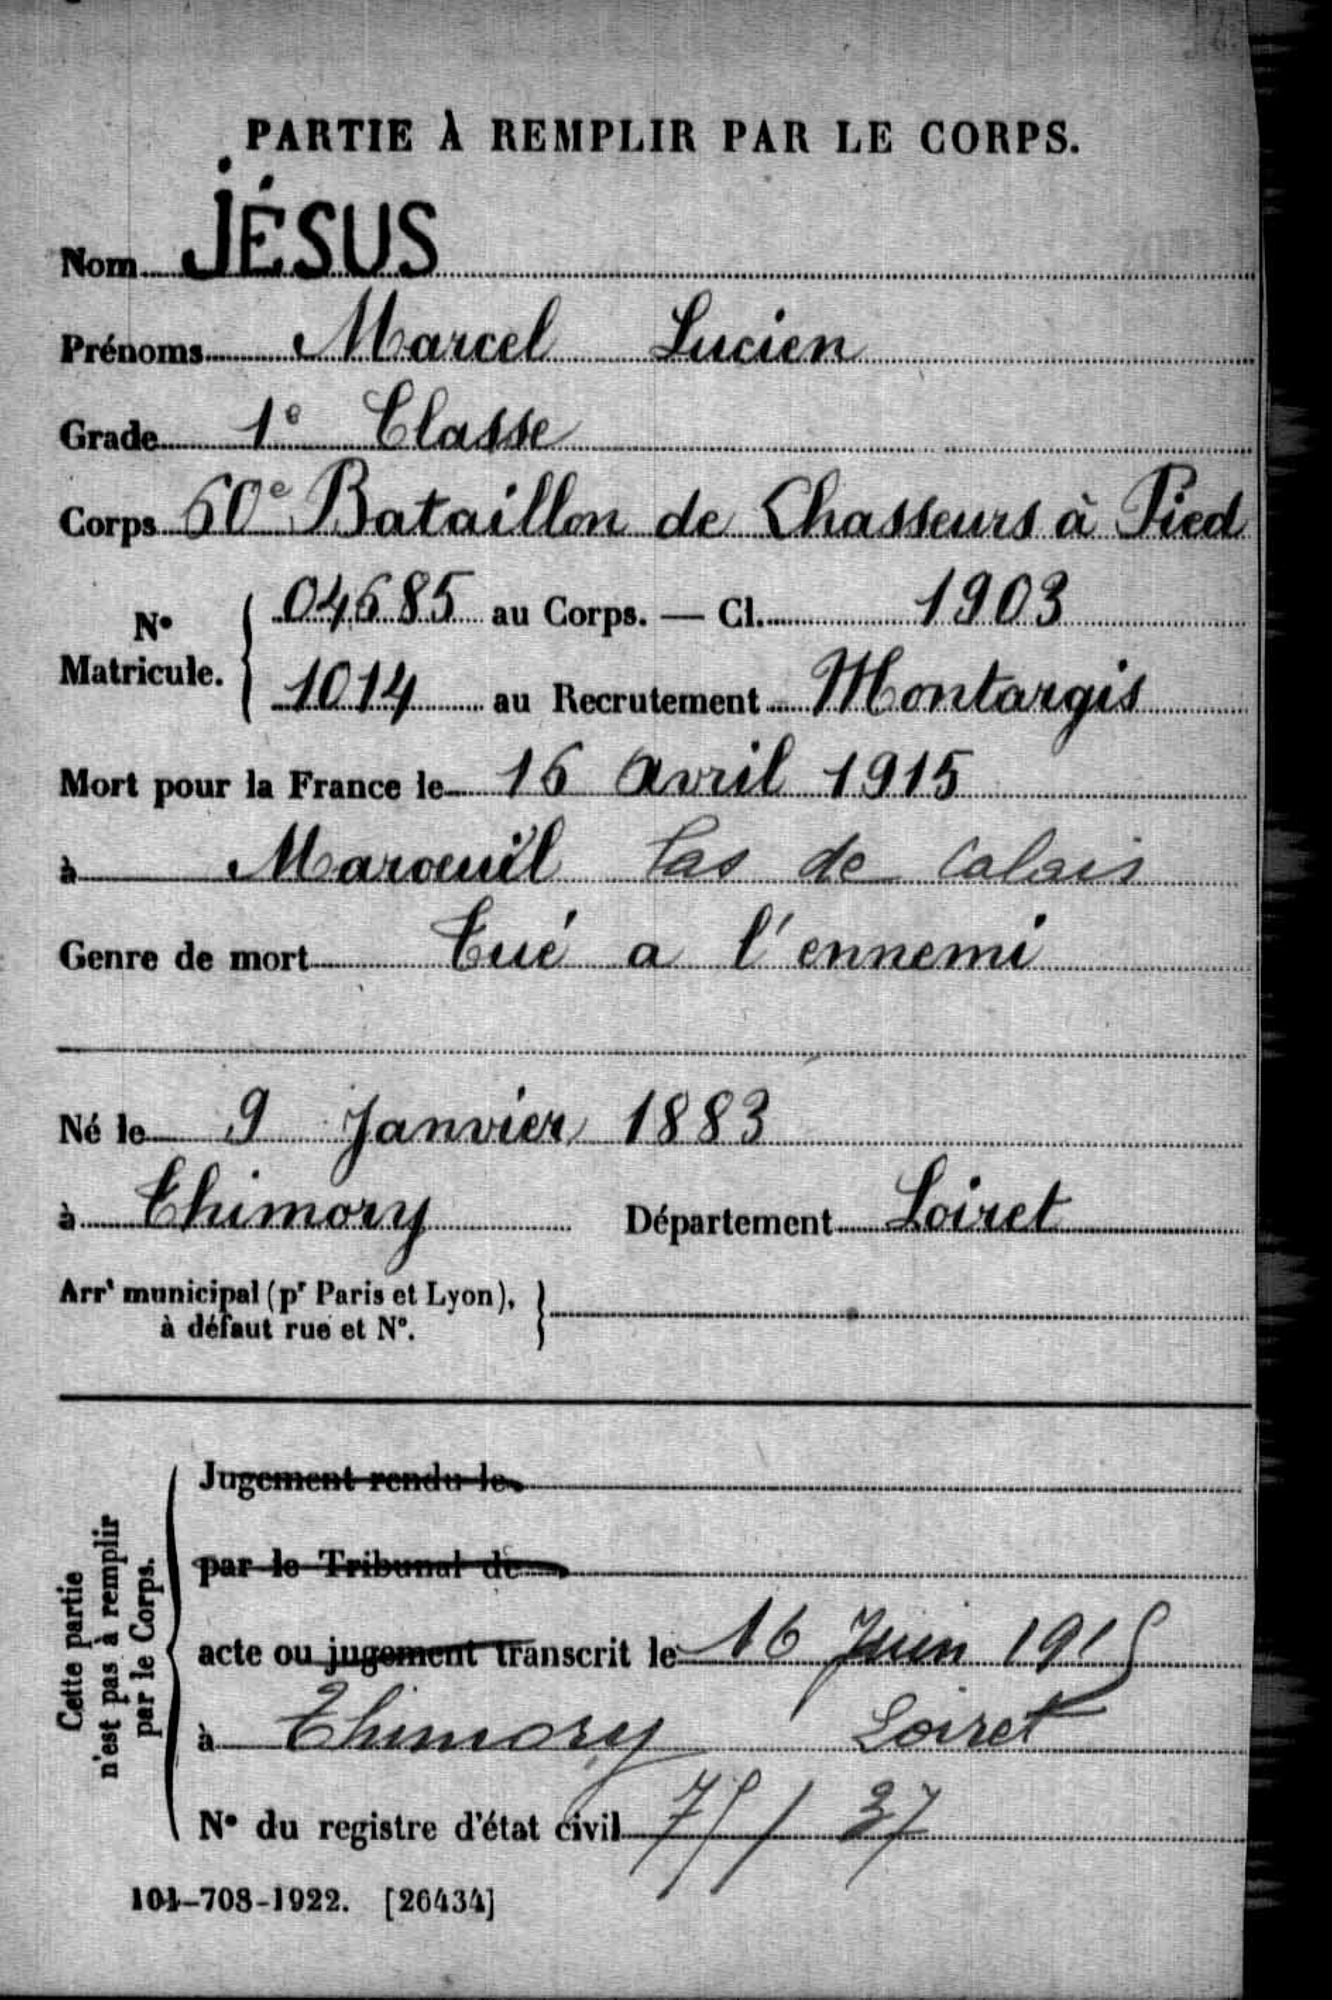 PARTIE À REMPLIR PAR LE CORPS.
Nom JÉSUS
Prénoms Marcel Lucien
Grade 1e Classe
Corps 60e Bataillon de Chasseurs à Pied
No Matricule. { 04685 au Corps. — Cl. 1903
1014 au Recrutement Montargis
Mort pour la France le 16 Avril 1915
à Maroeuil Pas de Calais
Genre de mort Tué a l'ennemi
Né le 9 Janvier 1883
à Thimory Département Loiret
Arrt municipal (pr Paris et Lyon), }
à défaut rue et No.
Cette partie n'est pas à remplir par le Corps.
Jugement rendu le
par le Tribunal de
acte ou jugement transcrit le 16 Juin 1915
à Thimory Loiret
No du registre d'état civil 75 / 37
101-708-1922. [26434]